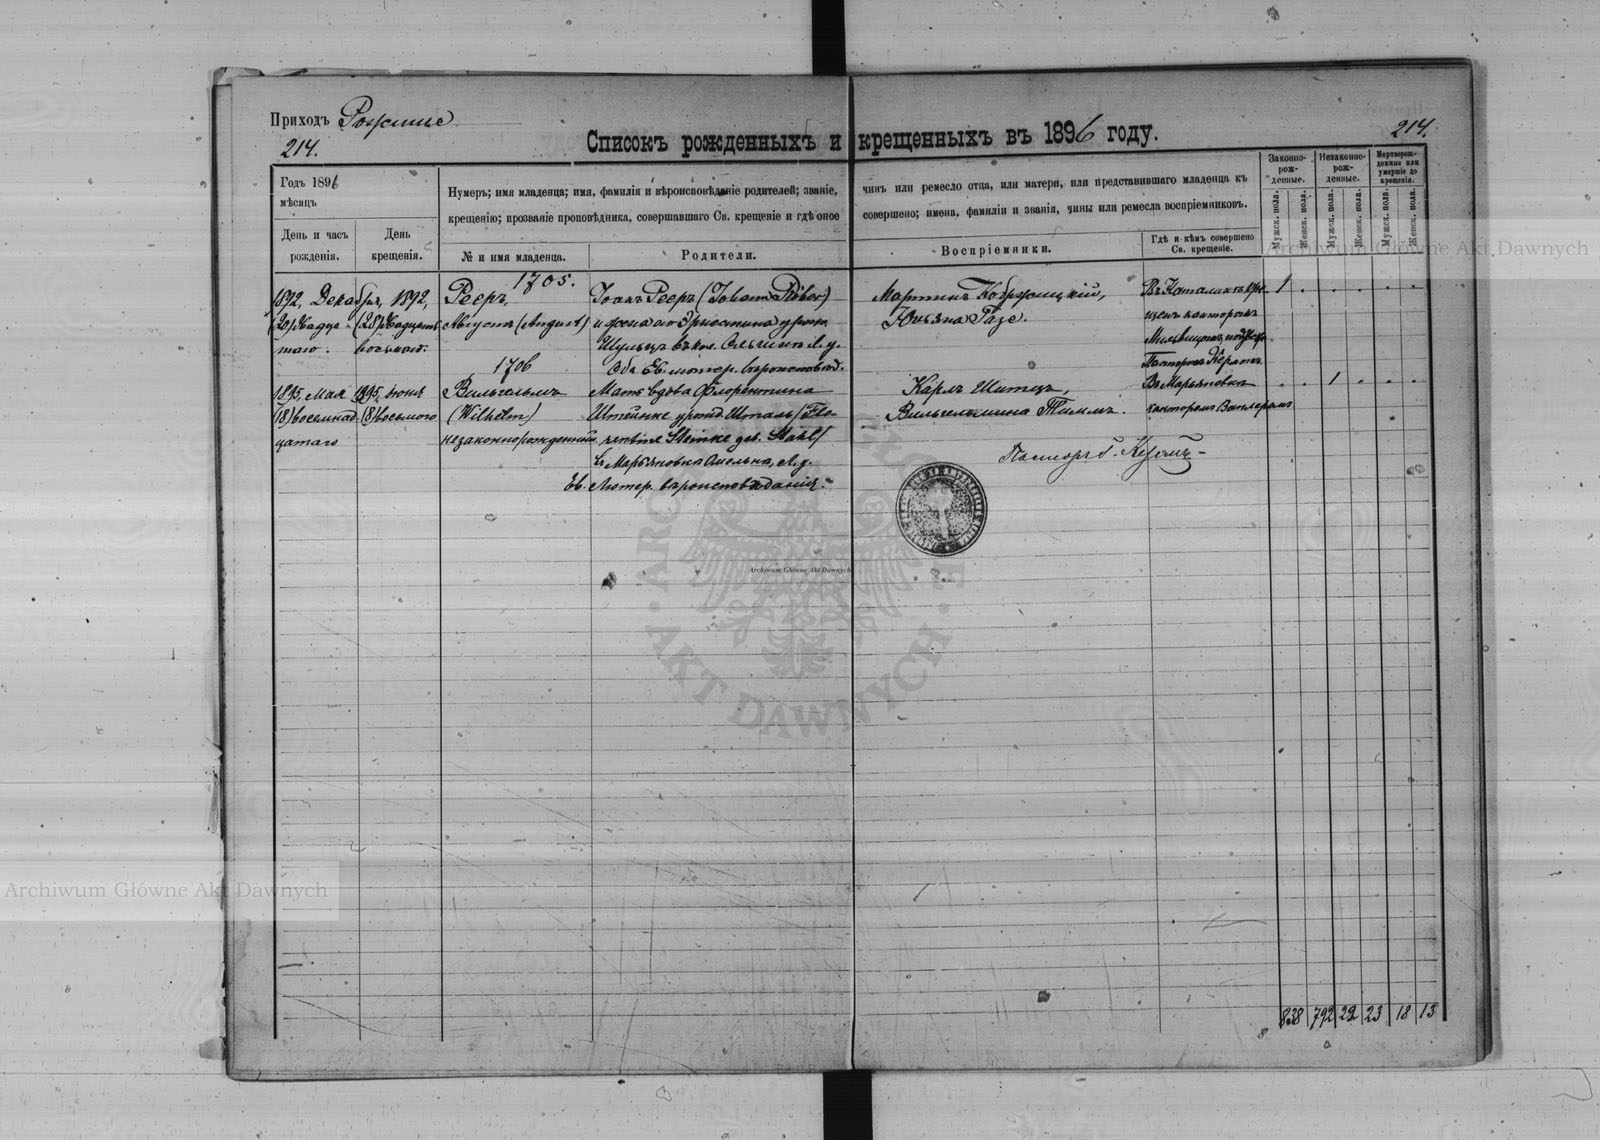 Приходъ Рожище
214.
Списокъ рожденныхъ и крещенныхъ въ 1896 году.
214.
Годъ 1896
мѣсяцъ
День и часъ
рожденія.
День
крещенія.
Нумеръ; имя младенца; имя, фамилія и вѣроисповѣданіе родителей; званіе,
крещенію; прозваніе проповѣдника, совершавшаго Св. крещеніе и гдѣ оное
№ и имя младенца.
Родители.
чинъ или ремесло отца, или матери, или представившаго младенца къ
совершено; имена, фамиліи и званія, чины или ремесла воспріемниковъ.
Воспріемники.
Гдѣ и кѣмъ совершено
Св. крещеніе.
Законно-
рож-
денные.
Незаконно-
рож-
денные.
Мертворож-
денные или
умершіе до
крещенія.
Мужск. пола.
Женск. пола.
Мужск. пола.
Женск. пола.
Мужск. пола.
Женск. пола.
1705.
1892, Декабря, 1892, Рееръ, Іоанъ Рееръ (Johann Reber) Мартинъ Въ 1
(20) двадца- (28) двадцать Августъ (August) и жена его урожд. Юльяна Газе. канторомъ
таго. восьмого. Шульцъ въ кол. Л. у.
1706 Оба Ев. лютер. вѣроисповѣд. Пасторъ
1895, Мая 1895, Іюня Вильгельмъ Мать вдова Флорентина Карлъ Въ Марьяновкѣ 1
(18) восемнад- (8) восьмого (Wilhelm) Штейнке урожд. Шталь (Flo- Вильгельмина Тиммъ. канторомъ
цатаго незаконнорожденный rentine Steinke geb. Stahl)
въ Марьяновка Л. у.
Ев. Лютер. вѣроисповѣданія.
Пасторъ
838 792 22 23 18 13
Archiwum Główne Akt Dawnych
Archiwum Główne Akt Dawnych
Archiwum Główne Akt Dawnych
AKT DAWNYCH